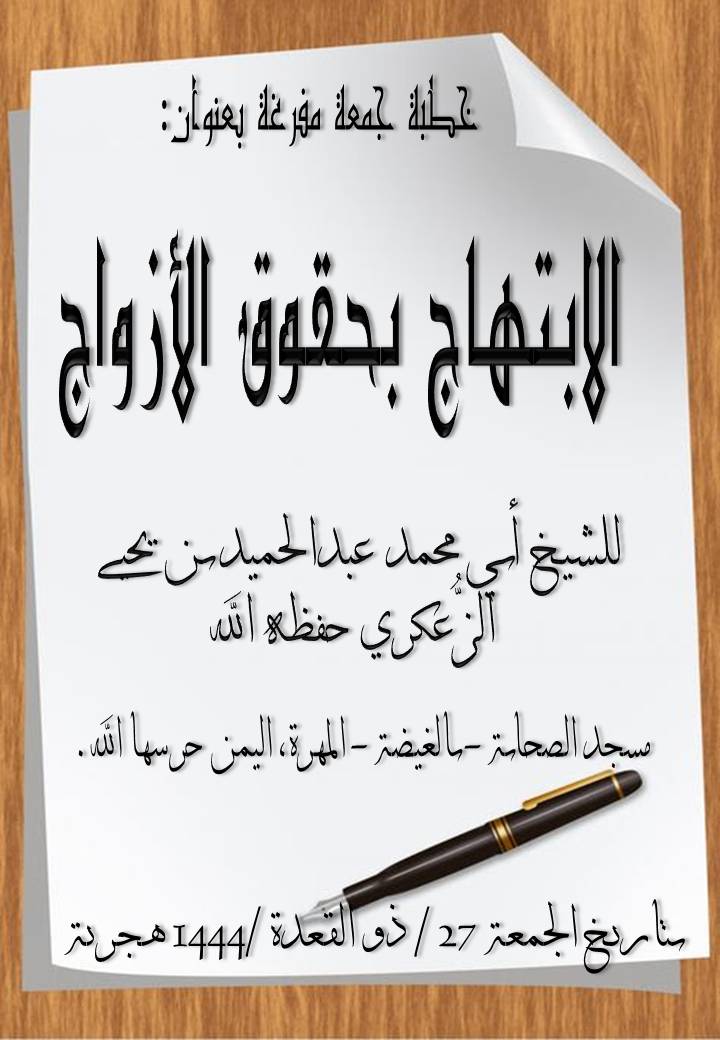 خطبة جمعة مفرغة بعنوان:
الابتهاج بحقوق الأزواج
للشيخ أبي محمد عبدالحميد بن يحيى
الزُّعكري حفظه الله
مسجد الصحابة - بالغيضة - المهرة، اليمن حرسها الله.
بتاريخ الجمعة 27 / ذو القعدة /1444 هجرية